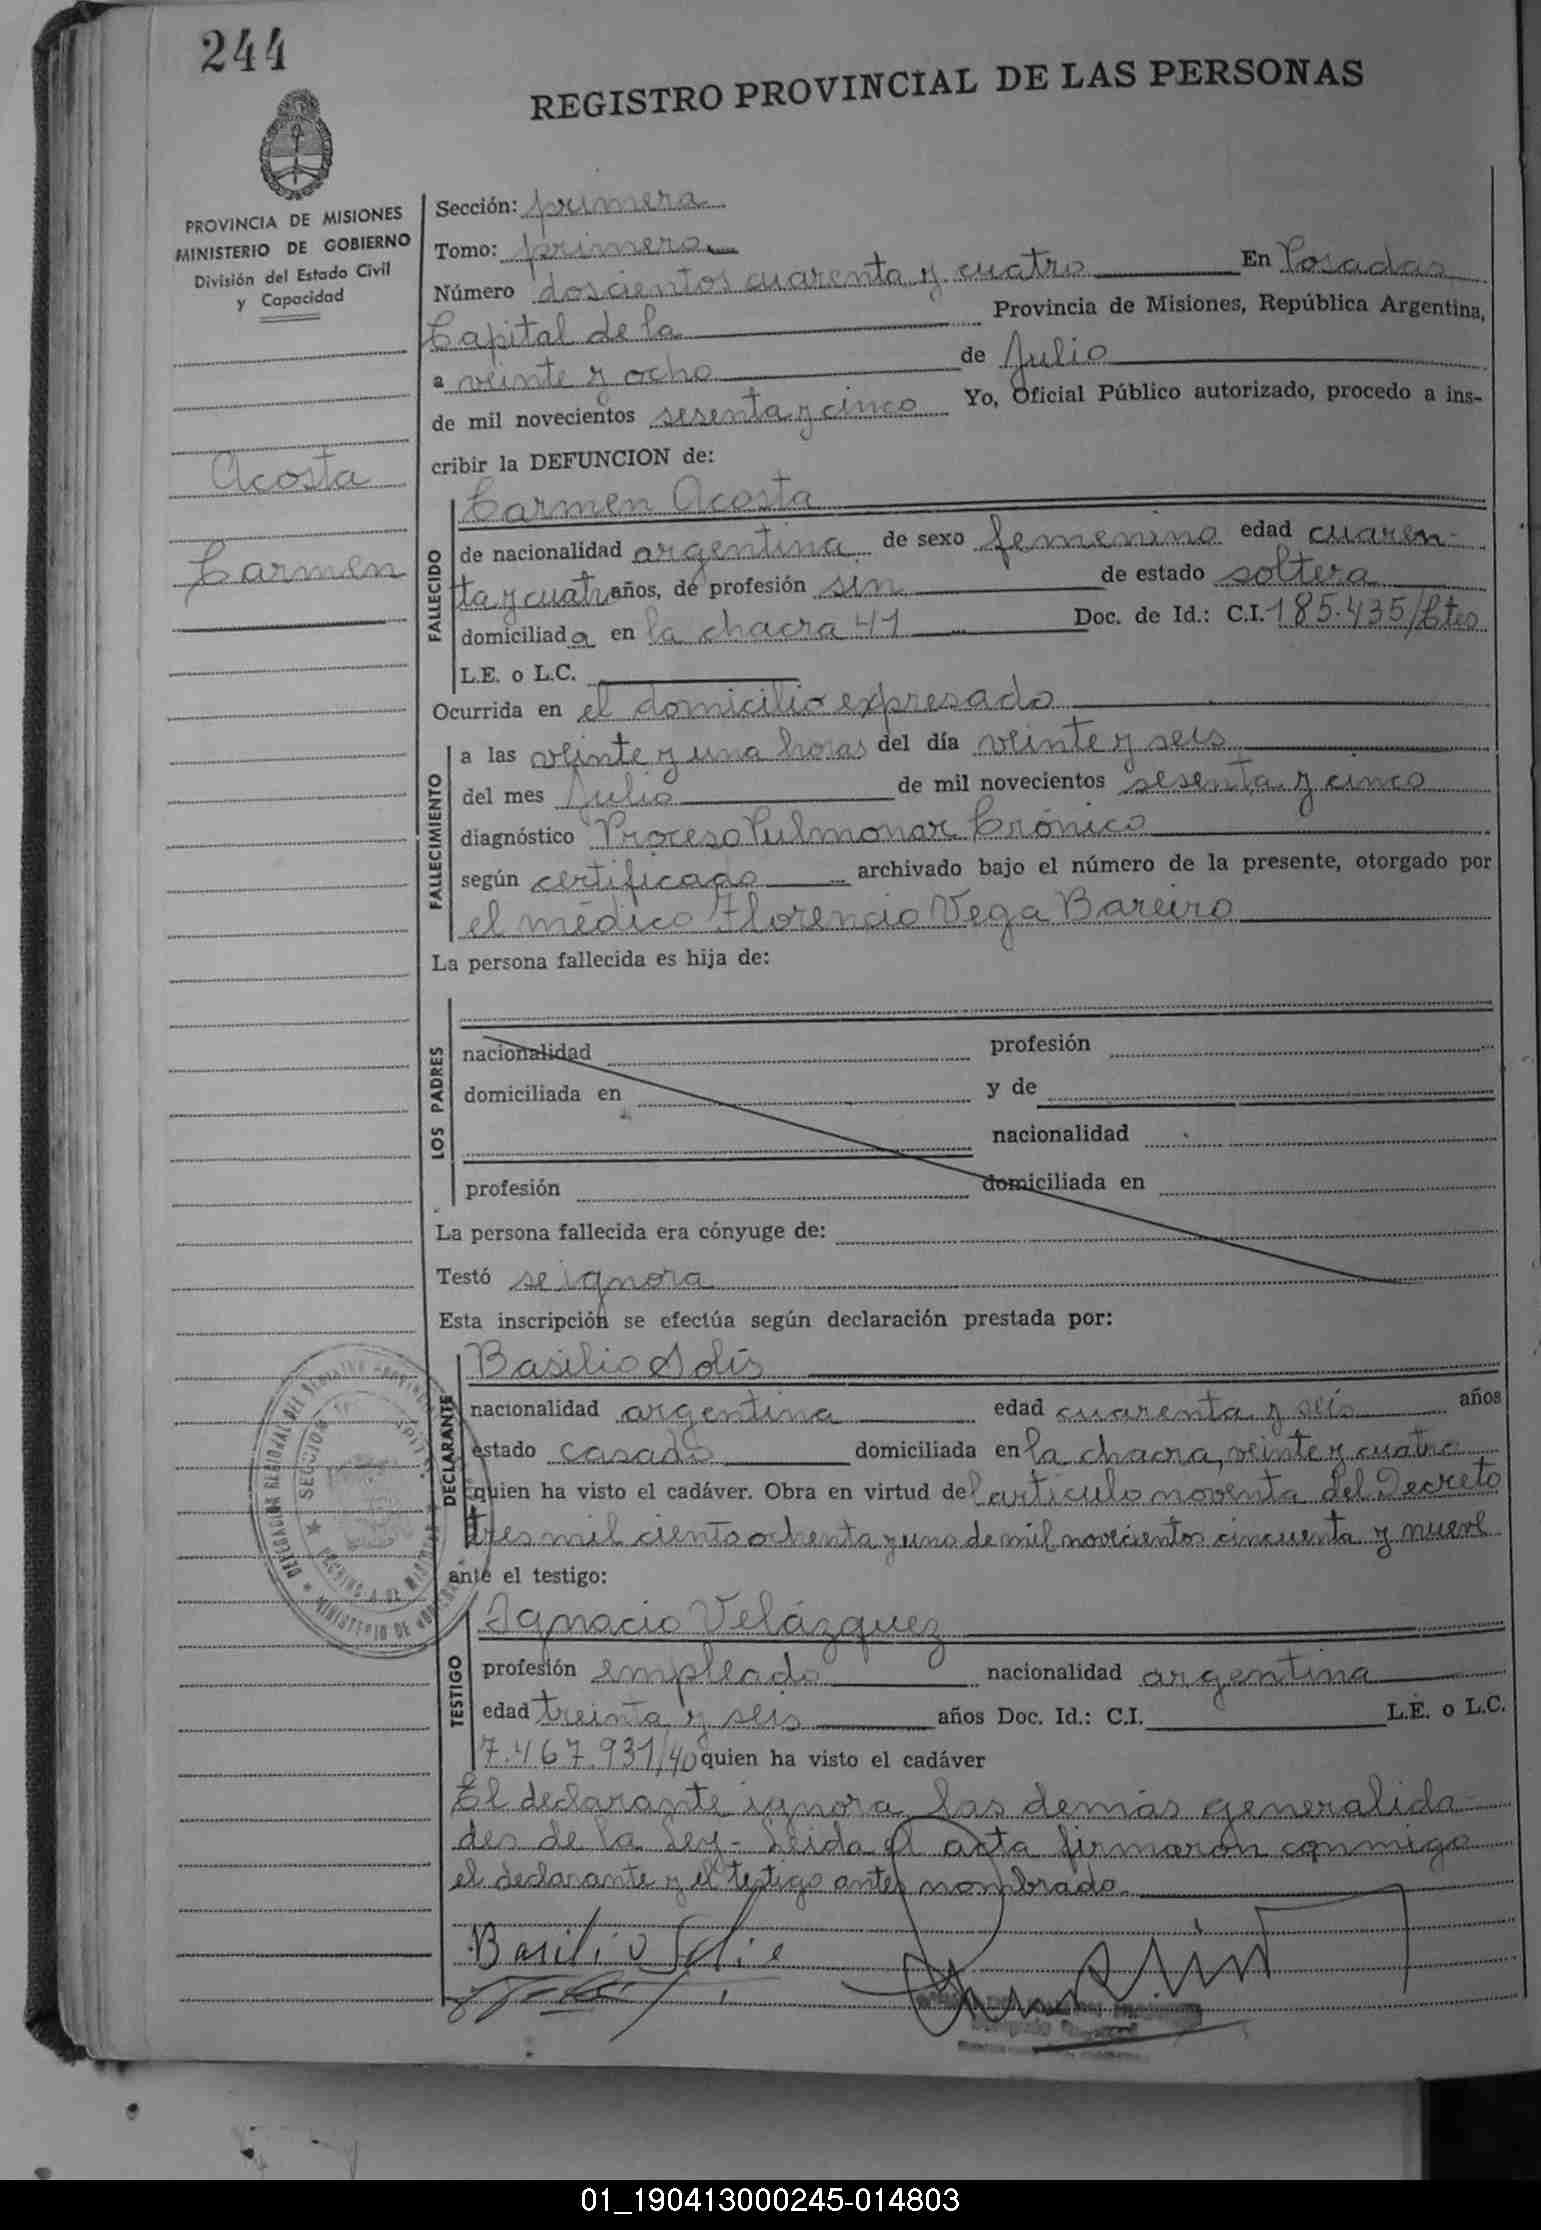 244
REGISTRO PROVINCIAL DE LAS PERSONAS
PROVINCIA DE MISIONES
MINISTERIO DE GOBIERNO
División del Estado Civil
y Capacidad
Acosta
Carmen
Sección: primera
Tomo: primero
Número doscientos cuarenta y cuatro En Posadas
Capital de la Provincia de Misiones, República Argentina,
a veinte y ocho de Julio
de mil novecientos sesenta y cinco Yo, Oficial Público autorizado, procedo a ins-
cribir la DEFUNCION de:
FALLECIDO
Carmen Acosta
de nacionalidad argentina de sexo femenino edad cuaren-
ta y cuatro años, de profesión sin de estado soltera
domiciliada en la chacra 41 Doc. de Id.: C.I. 185.435/Ctes
L.E. o L.C.
Ocurrida en el domicilio expresado
FALLECIMIENTO
a las veinte y una horas del día veinte y seis
del mes Julio de mil novecientos sesenta y cinco
diagnóstico Proceso Pulmonar Crónico
según certificado archivado bajo el número de la presente, otorgado por
el médico Florencio Vega Bareiro
La persona fallecida es hija de:
LOS PADRES
nacionalidad profesión
domiciliada en y de
nacionalidad
profesión domiciliada en
La persona fallecida era cónyuge de:
Testó se ignora
Esta inscripción se efectúa según declaración prestada por:
DECLARANTE
Basilio Solís
nacionalidad argentina edad cuarenta y seis años
estado casado domiciliada en la chacra, veinte y cuatro
quien ha visto el cadáver. Obra en virtud del artículo noventa del Decreto
tres mil ciento ochenta y uno de mil novecientos cincuenta y nueve
ante el testigo:
TESTIGO
Ignacio Velázquez
profesión empleado nacionalidad argentina
edad treinta y seis años Doc. Id.: C.I. L.E. o L.C.
7.467.931/40 quien ha visto el cadáver
El declarante ignora las demás generalida-
des de la Ley- Leida el acta firmaron conmigo
el declarante y el testigo antes nombrado
Basilio Solis
DELEGACION REGIONAL DEL REGISTRO PROVINCIAL
SECCION 1a
MINISTERIO DE GOBIERNO
01_190413000245-014803